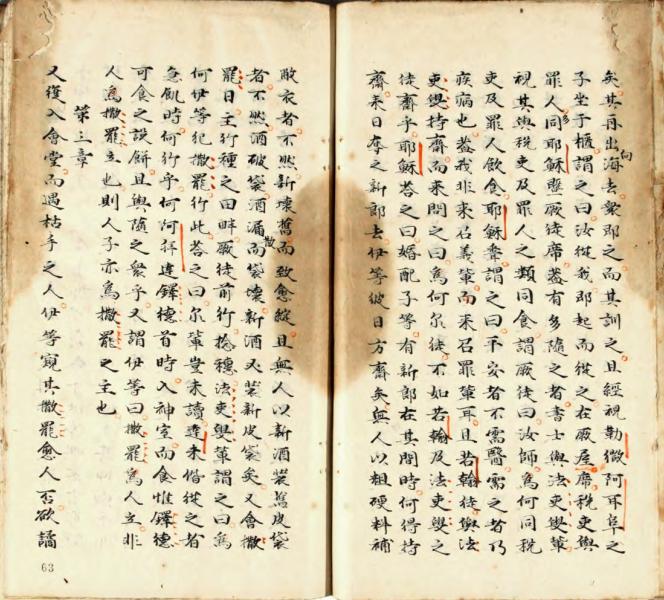 矣其再出海去衆即之而其訓之且經視勒微阿耳阜之
向
子坐于櫃謂之曰汝從我即起而從之在厥屋席稅吏與
罪人同耶穌曁厥徒席葢有多隨之者書士與法吏叟輩
多
視其與稅吏及罪人之類同食謂厥徒曰汝師爲何同稅
吏及罪人飲食耶穌聲謂之曰平安者不需醫需之者乃
疾病也葢我非来召義輩而来召罪輩耳且若翰徒與法
吏叟持齋而来問之曰爲何尔徒不如若翰及法吏叟之
徒齋乎耶穌荅之曰婚配子等有新郎在其間時何得持
齋来日奪之新郎去伊等彼日方齋矣無人以粗硬料補
敝衣者不然新壞舊而致愈綻且無人以新酒裝舊皮袋
者不然酒破袋酒漏而袋壞新酒又裝新皮袋矣又會撒
散
罷日主行種之田畔厥徒前行捻穗法吏叟輩謂之曰爲
何伊等犯撒罷行此荅之曰尔輩豈未讀達未偕從之者
急飢時何行乎何阿拜達鐸德首時入神室而食惟鐸德
可食之設餅且與隨之衆乎又謂伊等曰撒罷爲人立非
人爲撒罷立也則人子亦爲撒罷之主也
第三章
又復入會堂而遇枯手之人伊等窺其撒罷愈人否欲譎
63